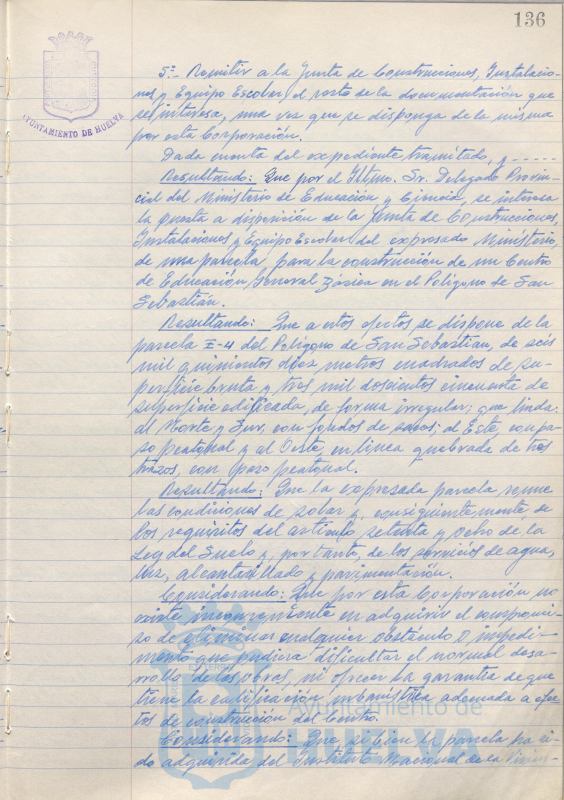 136
AYUNTAMIENTO DE HUELVA
5º.- Remitir a la Junta de Construcciones, Instalacio-
nes y Equipo Escolar, el resto de la documentación que
se interesa, una vez que se disponga de la misma
por esta Corporación.
Dada cuenta del expediente tramitado, y -----
Resultando: Que por el Iltmo. Sr. Delegado Provin-
cial del Ministerio de Educación y Ciencia, se interesa
la puesta a disposición de la Junta de Construcciones,
Instalaciones y Equipo Escolar del expresado Ministerio,
de una parcela para la construcción de un Centro
de Educación General Básica en el Polígono de San
Sebastián.
Resultando: Que a estos efectos, se dispone de la
parcela E-4 del Polígono de San Sebastián, de seis
mil quinientos diez metros cuadrados de su-
perficie bruta y tres mil doscientos cincuenta de
superficie edificada, de forma irregular; que linda:
al Norte y Sur, con fondos de sacos; al Este, con pa-
so peatonal y al Oeste, en línea quebrada de tres
trazos, con paso peatonal.
Resultando: Que la expresada parcela reune
las condiciones de solar y, consiguientemente de
los requisitos del artículo setenta y ocho de la
Ley del Suelo y, por tanto, de los servicios de agua,
luz, alcantarillado y pavimentación.
Considerando: Que por esta Corporación no
existe inconveniente en adquirir el compromi-
so de eliminar cualquier obstáculo o impedi-
mento que pudiera dificultar el normal desa-
rrollo de las obras, ni ofrecer la garantía de que
tiene la calificación urbanística adecuada a efec-
tos de construcción del Centro.
Considerando: Que si bien la parcela ha si-
do adquirida del Instituto Nacional de la Vivien-
Ayuntamiento de
HUELVA